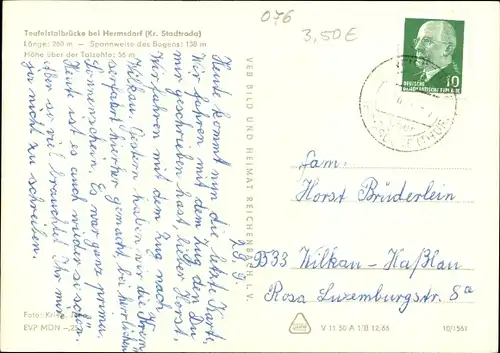 Teufelstalbrücke bei Hermsdorf (Kr. Stadtroda)
Länge: 260 m — Spannweite des Bogens: 138 m
Höhe über der Talsohle: 56 m
076
3,50€
28.9.
Heute kommt nun die letzte Karte.
Wir fahren mit dem Zug den Du
mir geschrieben hast, lieber Horst.
Wir fahren mit dem Zug nach
Wilkau. Gestern haben wir die
fahrt hinter gemacht bei herrlichem
Sonnenschein. Es war ganz prima.
Heute ist es auch wieder so schön.
so viel braucht Ihr mir
gar nicht zu schreiben.
VEB BILD UND HEIMAT REICHENBACH I. V.
DEUTSCHE
DEMOKRATISCHE REPUBLIK
10
Fam.
Horst Brüderlein
9533 Wilkau-Haßlau
Rosa Luxemburgstr. 5a
Foto:
EVP MDN —,
V 11 50 A 1/B 12,66
10/1561